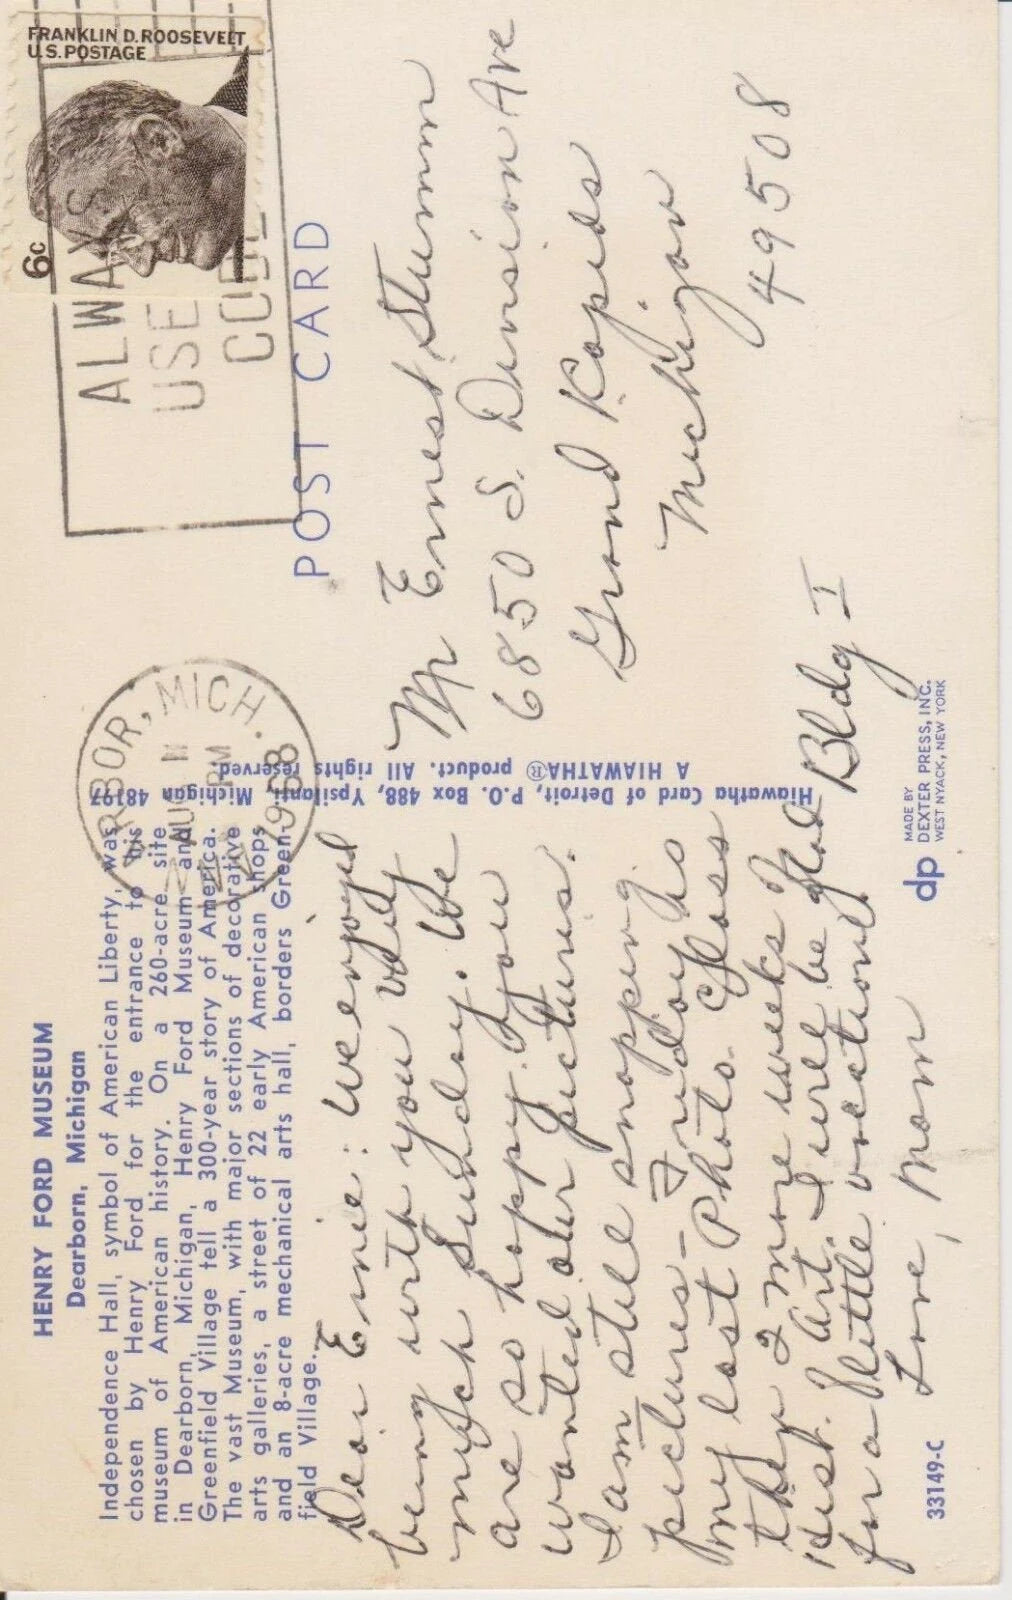 HENRY FORD MUSEUM
Dearborn, Michigan
Independence Hall, symbol of American Liberty, was
chosen by Henry Ford for the entrance to his
museum of American history. On a 260-acre site
in Dearborn, Michigan, Henry Ford Museum and
Greenfield Village tell a 300-year story of America.
The vast Museum, with major sections of decorative
arts galleries, a street of 22 early American shops
and an 8-acre mechanical arts hall, borders Green-
field Village.
Dear Ernie: We enjoyed
being with you very
much Sunday. We
are so happy you
wanted our pictures.
I am still snapping
pictures - Friday is
my last Photo Class
then 2 more weeks of
Hist. Art. I will be glad
for a little vacation.
Love, Mom
33149-C
Hiawatha Card of Detroit, P.O. Box 488, Ypsilanti, Michigan 48197
A HIAWATHA® product. All rights reserved.
dp
MADE BY
DEXTER PRESS, INC.
WEST NYACK, NEW YORK
ARBOR, MICH.
AUG
PM
1968
ALWAYS
USE
CODE
FRANKLIN D. ROOSEVELT
U.S. POSTAGE
6c
POST CARD
Mr Ernest Stumm
6850 S. Division Ave
Grand Rapids
Michigan
49508
Bldg I